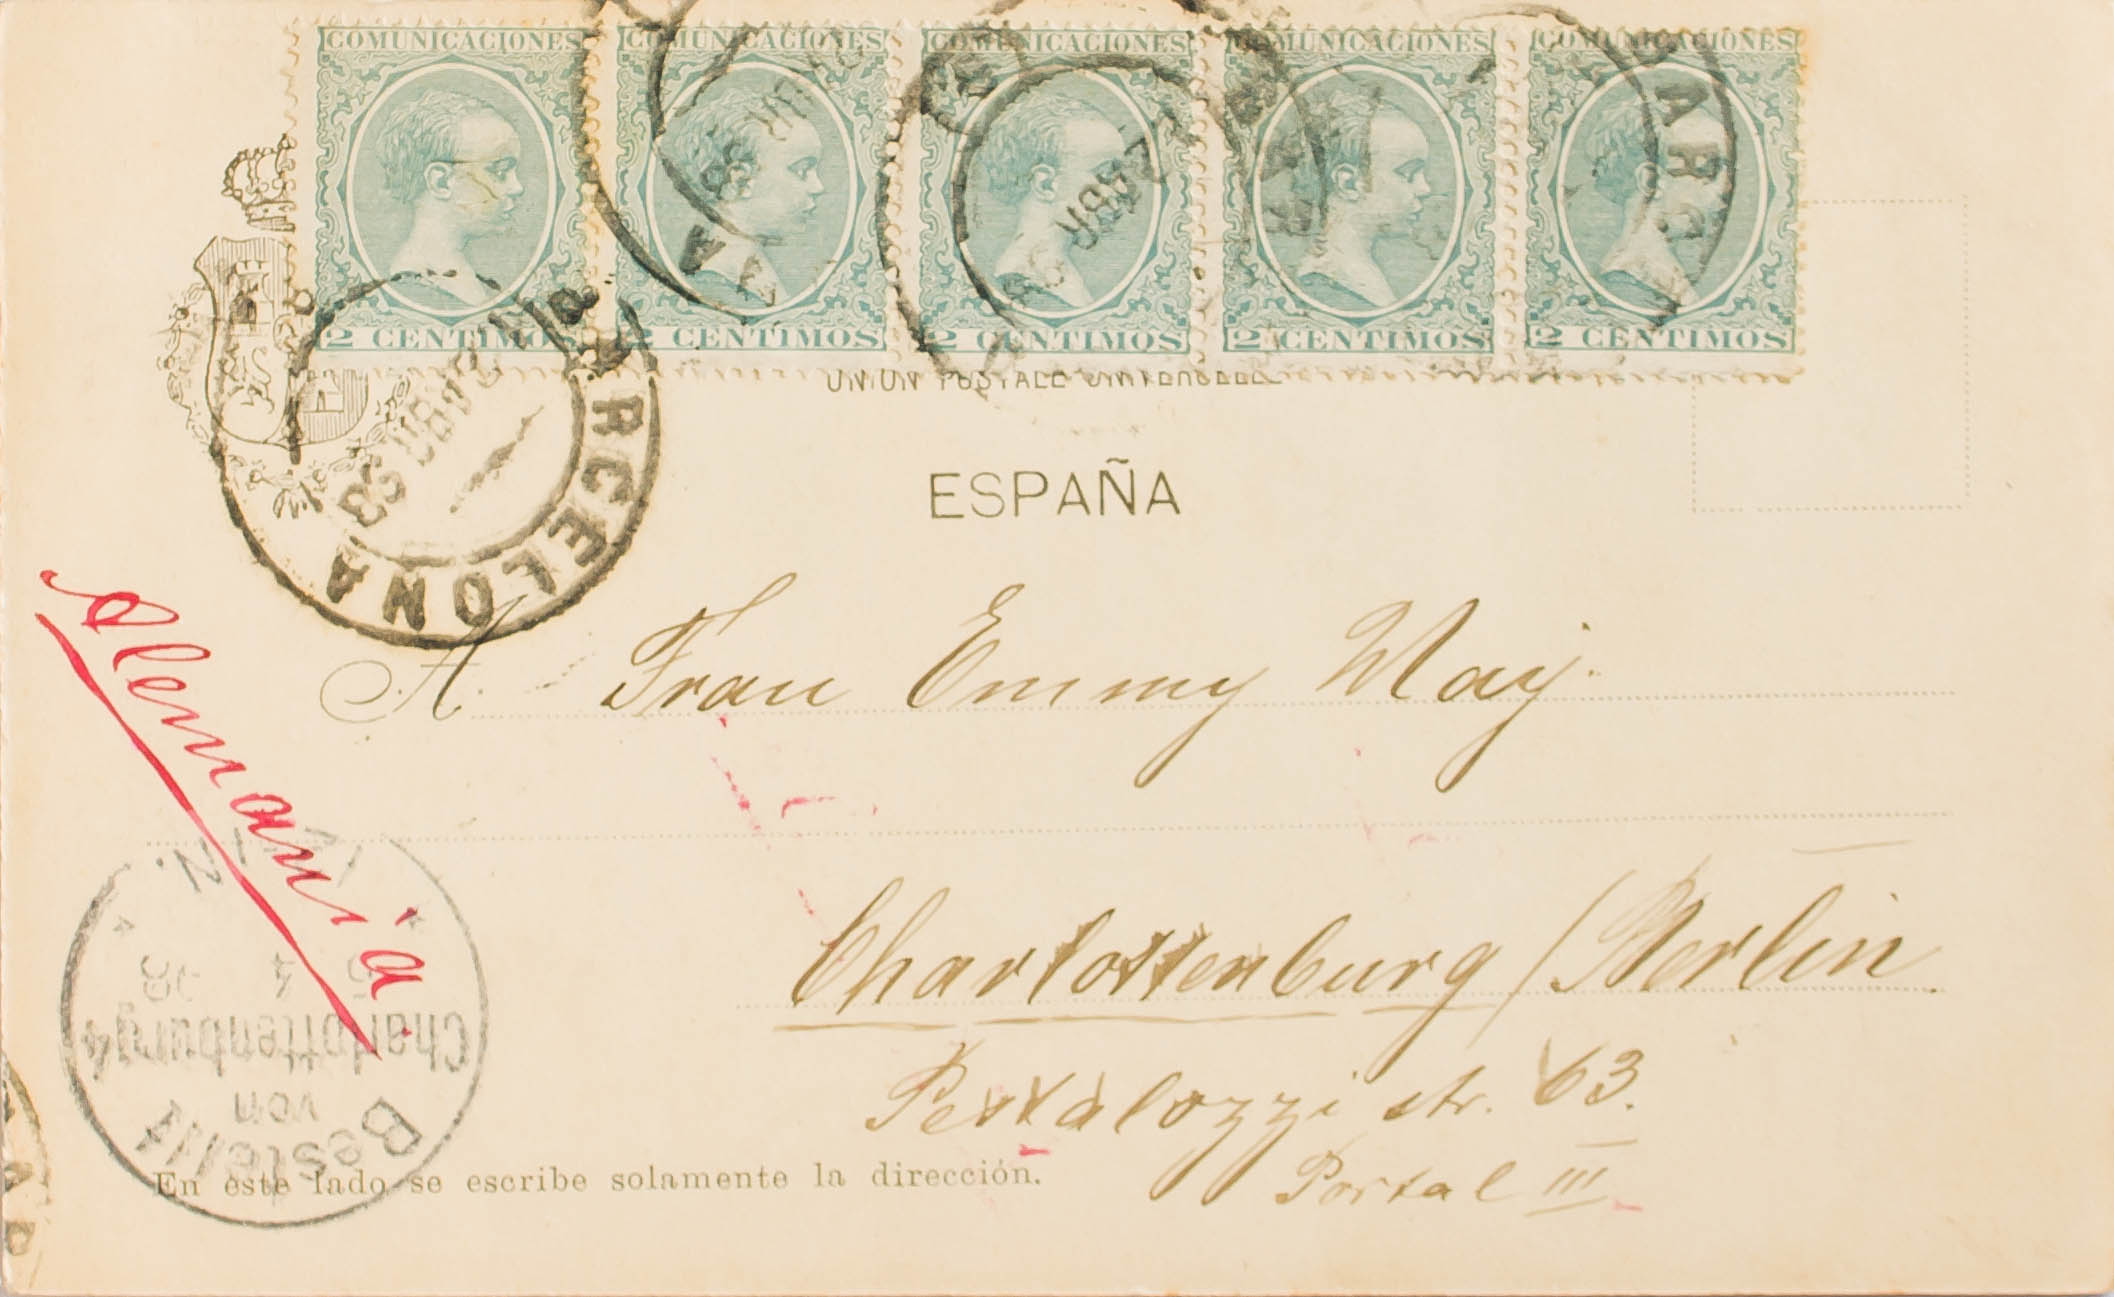 COMUNICACIONES COMUNICACIONES COMUNICACIONES COMUNICACIONES COMUNICACIONES
2 CENTIMOS 2 CENTIMOS 2 CENTIMOS 2 CENTIMOS 2 CENTIMOS
UNION POSTALE UNIVERSELLE
ESPAÑA
BARCELONA
Alemania
A. Frau Emmy May.
Charlottenburg / Berlin
Pestalozzi str. 63.
Portal III
Bestellt
von
Charlottenburg 4
En este lado se escribe solamente la dirección.